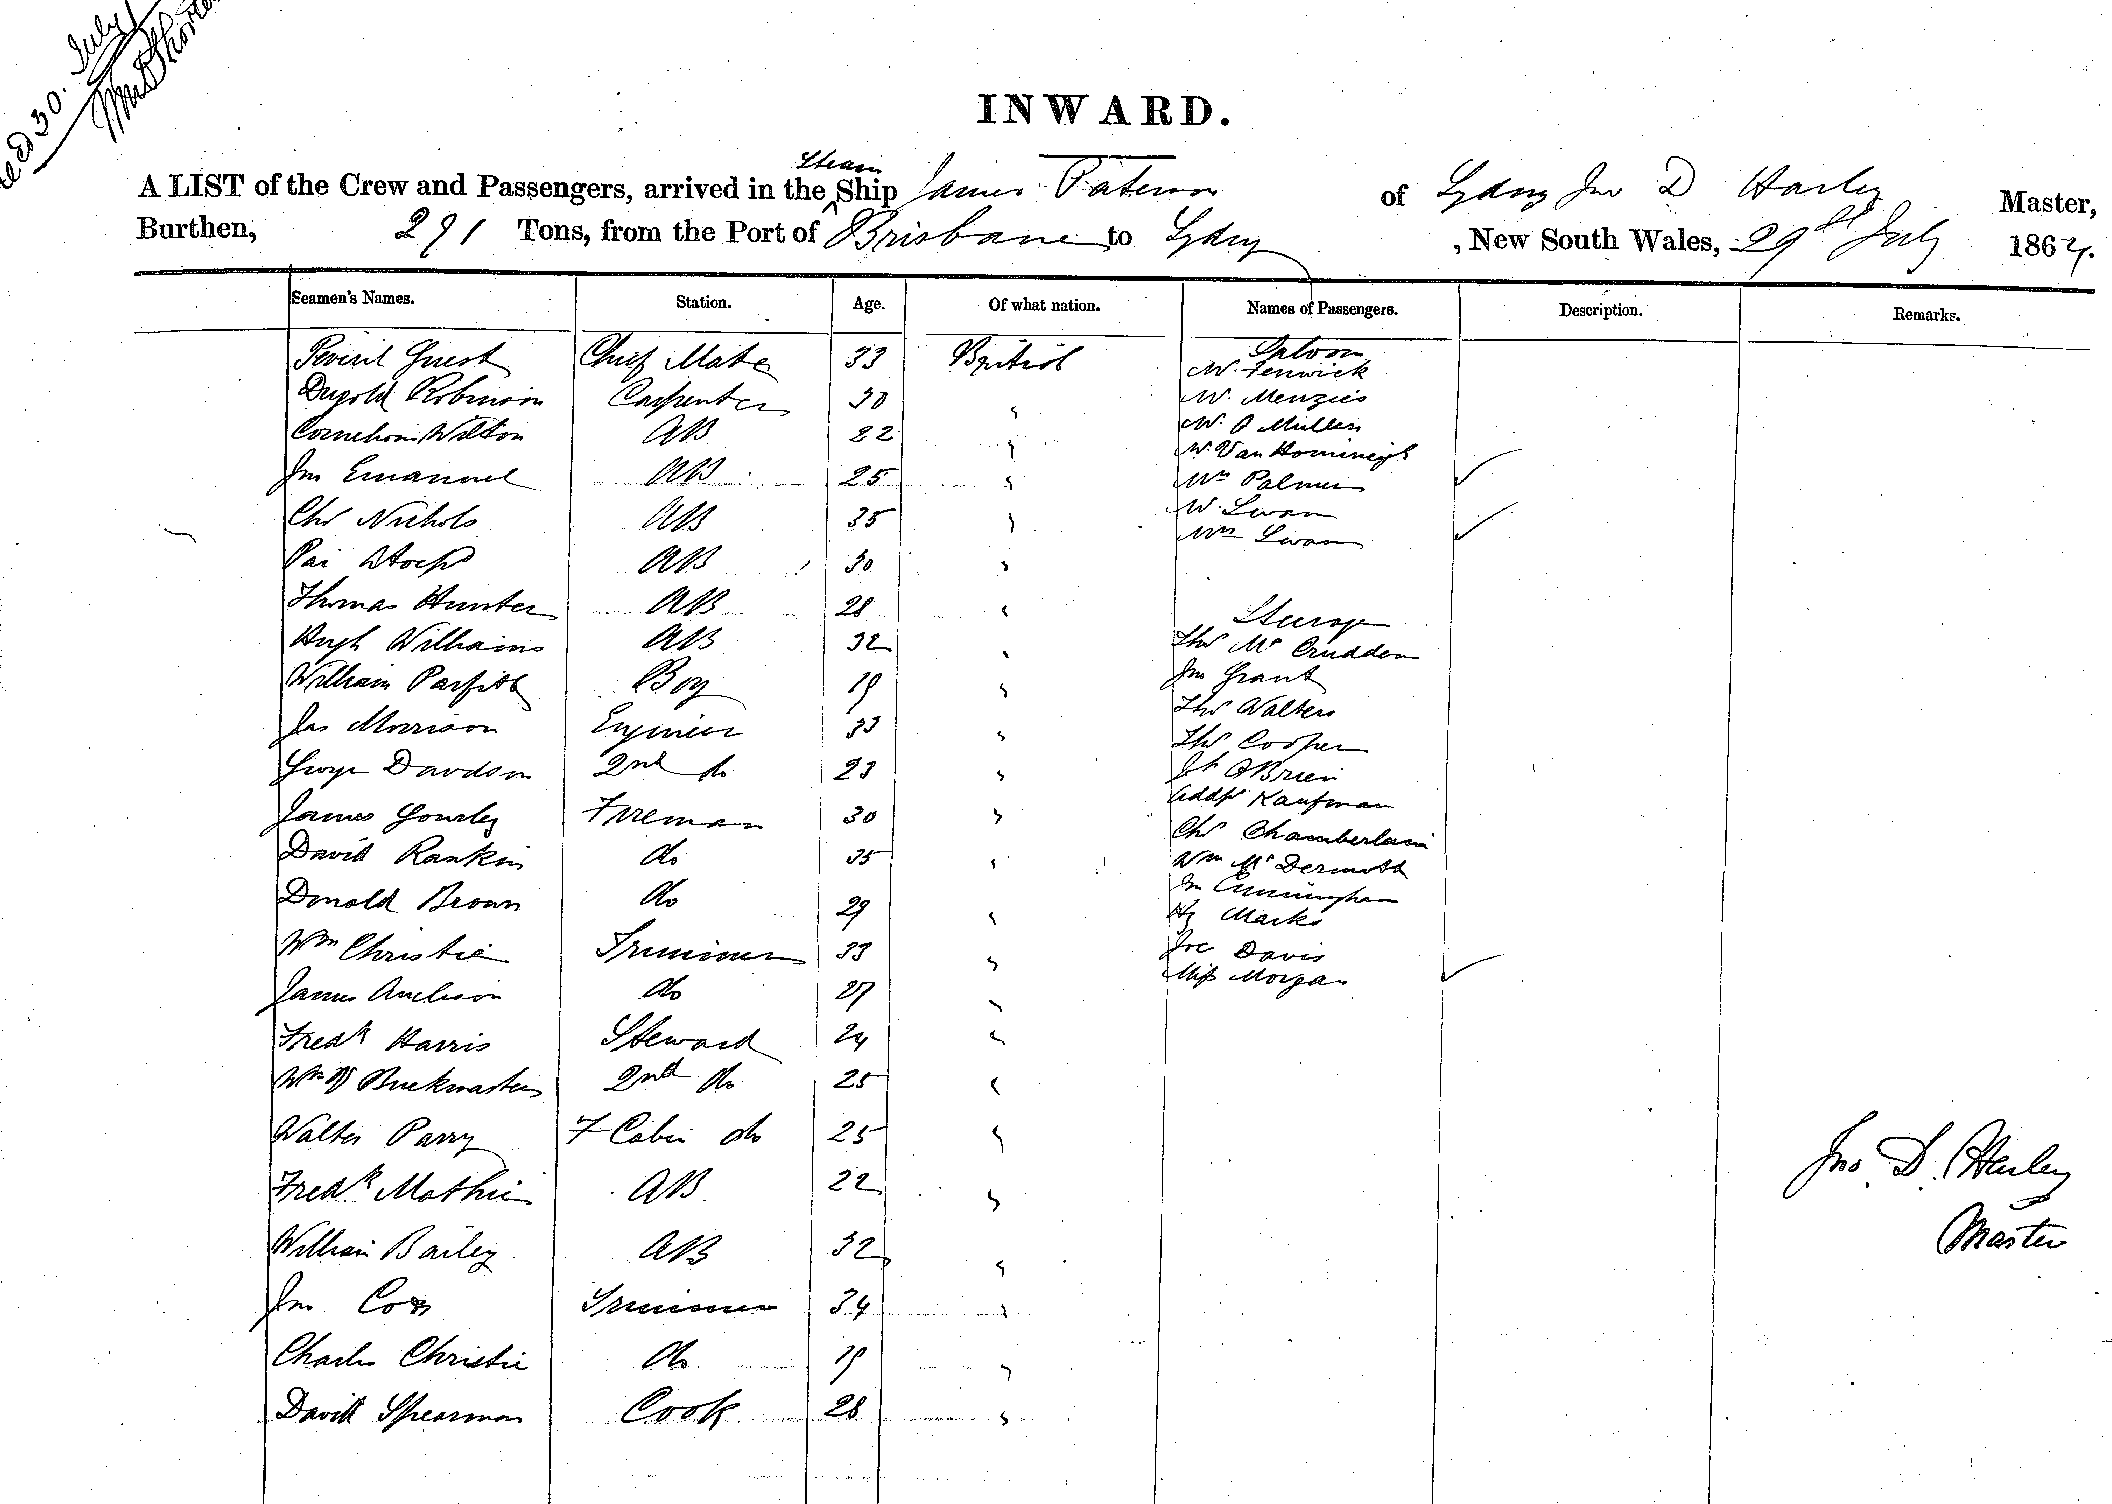 30. July
INWARD.
Steam
A LIST of the Crew and Passengers, arrived in the Ship James Paterson of Sydney Jno D Harley Master,
Burthen, 291 Tons, from the Port of Brisbane to Sydney, New South Wales, 29th July 1864.
Seamen's Names. Station. Age. Of what nation. Names of Passengers. Description. Remarks.
Saloon
Peveril Guest Chief Mate 33 British Mr. Fenwick
Dugold Robinson Carpenter 30 " Mr. Menzies
Mr. Muller
Cornelious Wilton AB 22 "
Mr. Van
Jno Emanuel AB 25 " Mrs Palmer
Mr. Swan
Chs Nichols AB 35 " Mrs Swan
AB 30 "
Thomas Hunter AB 28 " Steerage
Hugh Williams AB 32 " Thos McCrudden
William Parfitt Boy 19 " Jno Grant
Thos Walters
Jas Morrison Engineer 33 " Thos Cooper
George Davidson 2nd do 23 " O'Brien
Kaufman
James Gourley Fireman 30 " Chs Chamberlain
David Rankin do 35 " Wm McDermott
Donald Brown do 29 " Jno Cunningham
Hy Marks
Wm Christie Trimmer 33 " Jos Davis
Miss Morgan
James do 27 "
Fredk Harris Steward 24 "
Wm Buckmaster 2nd do 25 "
Walter Parry F Cabin do 25 " Jno. D. Harley
Fredk Mathie AB 22 " Master
William Bailey AB 32 "
Jno Trimmer 34 "
Charles Christie do 19 "
David Spearman Cook 28 "